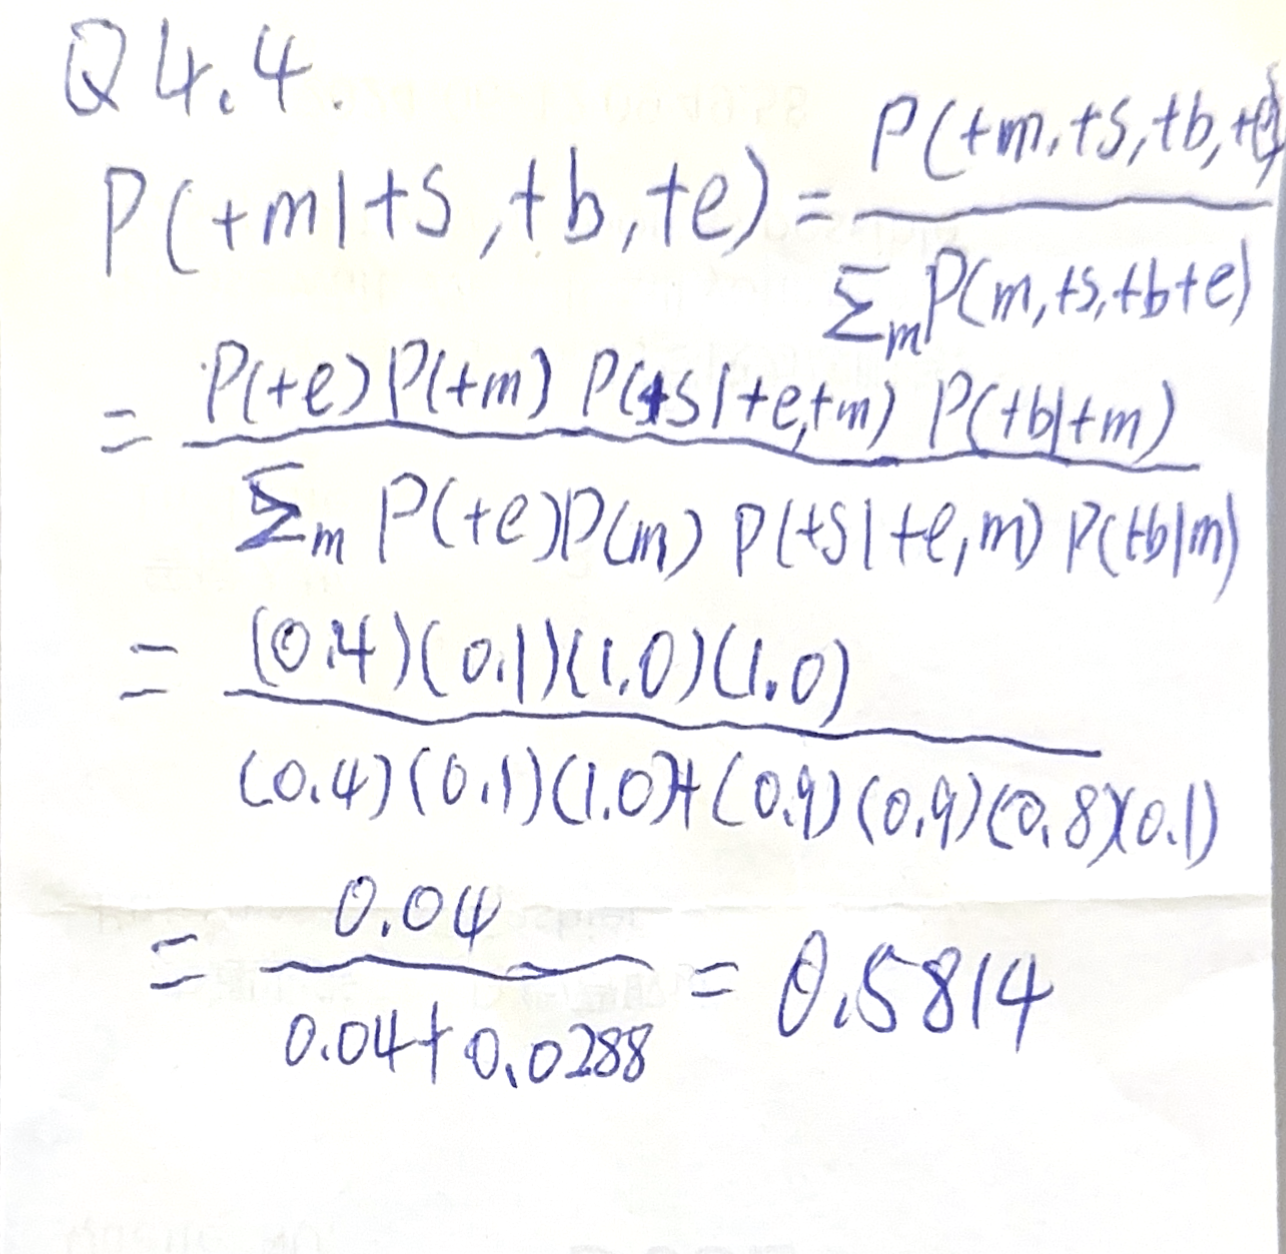 Q4.4.
P(+m|+s,+b,+e) = P(+m,+s,+b,+e) / Σ_m P(m,+s,+b+e)
= P(+e) P(+m) P(+s|+e,+m) P(+b|+m) / Σ_m P(+e)P(m) P(+s|+e,m) P(+b|m)
= (0.4)(0.1)(1.0)(1.0) / (0.4)(0.1)(1.0)+(0.9)(0.9)(0.8)(0.1)
= 0.04 / 0.04+0.0288 = 0.5814